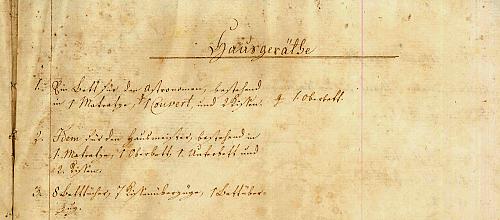 Hausgeräthe
1. Ein Bett für den Astronomen, bestehend
in 1 Matratze, 1 Couvert, und 2 Kissen. & 1 Oberbett.
2. Idem für den Hausmeister, bestehend in
1 Matratze, 1 Oberbett 1 Unterbett und
2 Kissen.
3. 8 Betttücher, 7 Kissenüberzüge, 1 Bettüber-
zug.